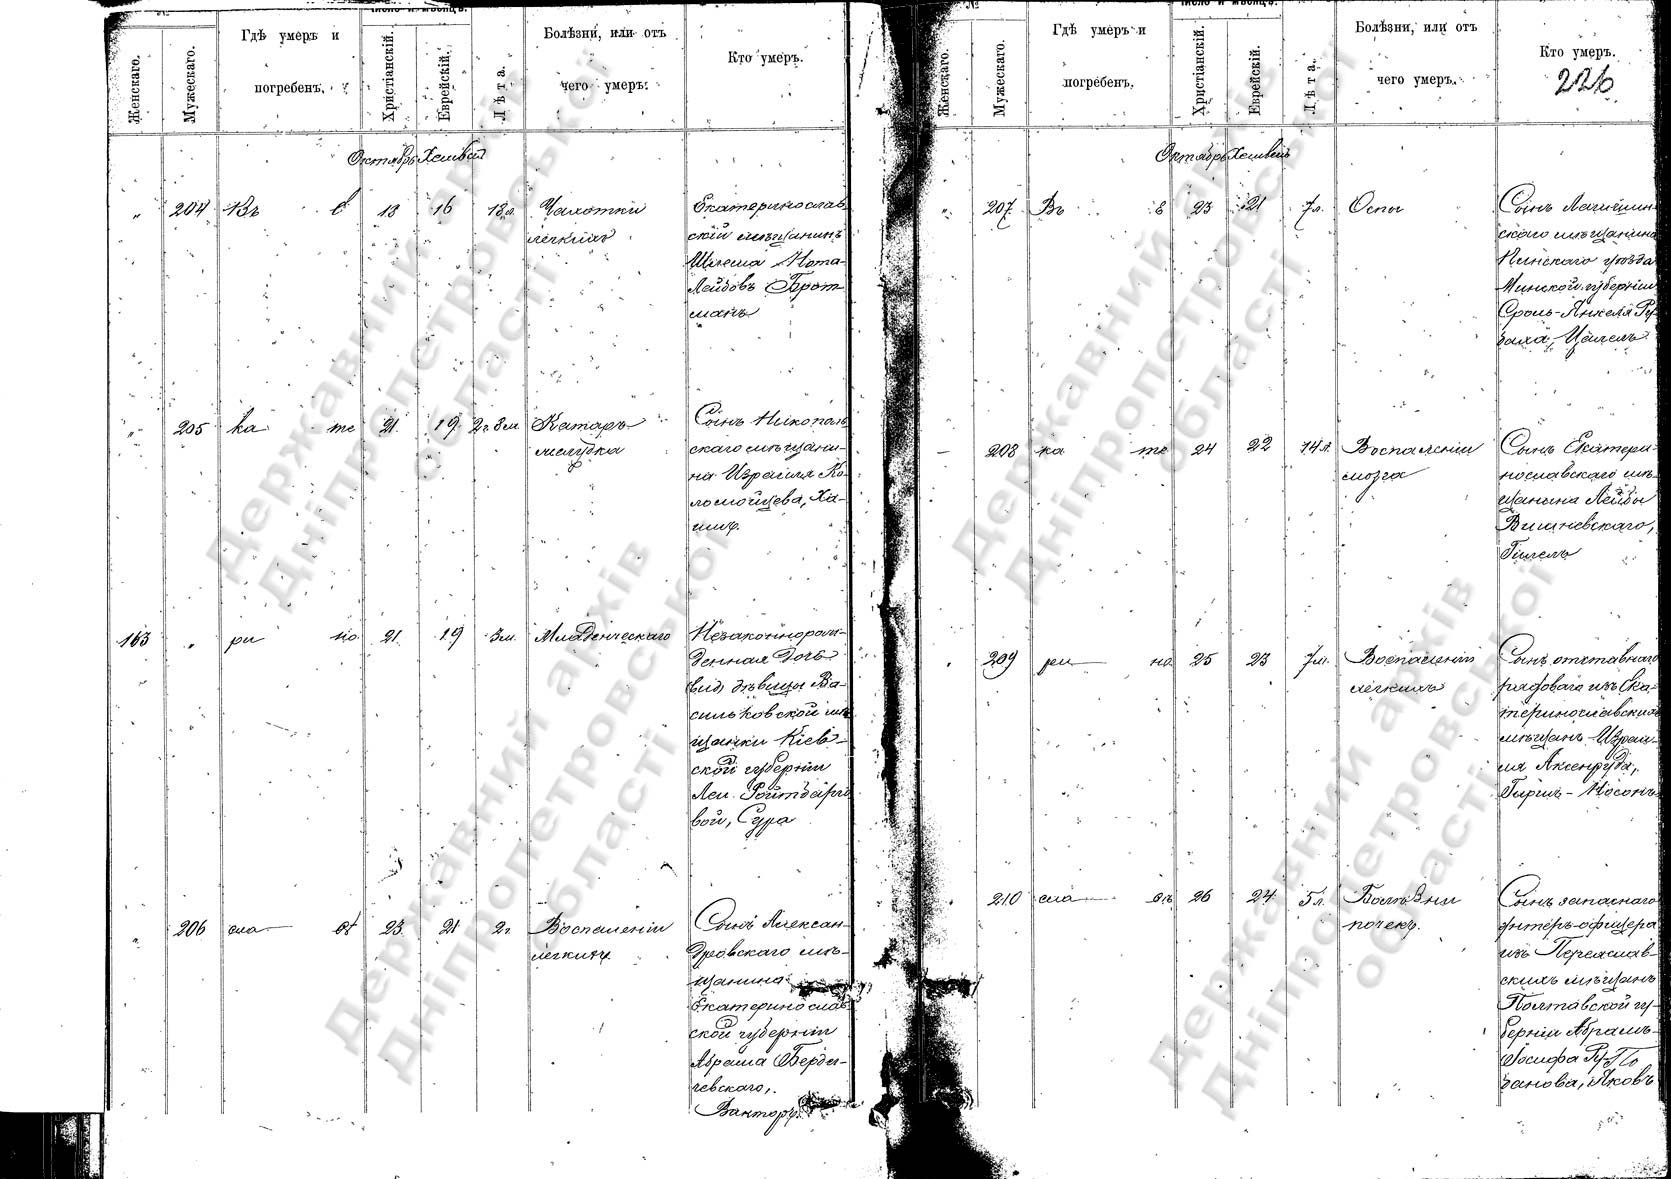 №
Число и мѣсяцъ.
Женскаго.
Мужескаго.
Гдѣ умеръ и
погребенъ.
Христіанскій.
Еврейскій.
Лѣта.
Болѣзни, или отъ
чего умеръ.
Кто умеръ.
Октябрь Хешвон
" 204 Въ Е 18 16 18 л. Чахотки
легкихъ
Екатеринослав-
скій мѣщанинъ
Шлема Нота-
Лейбовъ Брот-
манъ
" 205 ка те 21 19 2 г. 8 м. Катаръ
желудка
Сынъ Никополь
скаго мѣщани-
на Израиля Ко-
ломойцева, Ха-
имъ.
163 " ри но 21 19 3 м. Младенческаго
Незаконнорож-
денная дочь
(вид) дѣвицы Ва-
сильковской мѣ
щанки Кіев-
ской губерніи
Леи
вой, Сура
" 206 сла вѣ 23 21 2 г. Воспаленіи
легкихъ
Сынъ Алексан-
дровскаго мѣ-
щанина
Екатеринослав
ской губерніи
Абрама Берди-
чевскаго,
Вікторъ
№
Число и мѣсяцъ.
Женскаго.
Мужескаго.
Гдѣ умеръ и
погребенъ.
Христіанскій.
Еврейскій.
Лѣта.
Болѣзни, или отъ
чего умеръ.
Кто умеръ.
226
Октябрь Хешвонъ
" 207 Въ Е 23 21 7 л. Оспы
Сынъ Лагишин-
скаго мѣщанина
Пинскаго уѣзда
Минской губерніи
Сроль-Янкеля Ру-
баха,
208 ка те 24 22 14 л. Воспаленіи
мозга
Сынъ Екатери-
нославскаго мѣ-
щанина Лейбы
Вишневскаго,
Гилель
209 ри но 25 23 7 м. Воспаленіи
легкихъ
Сынъ отставнаго
рядоваго изъ Ека-
теринославскихъ
мѣщанъ Израи-
ля Аксенруда,
Гиршъ-Носонъ
210 сла вѣ 26 24 5 л. Болѣзни
почекъ.
Сынъ запаснаго
унтеръ-офицера
изъ Переяслав-
скихъ мѣщанъ
Полтавской гу-
берніи Абрамъ-
Іосифа
Яковъ
Державний архів
Дніпропетровської
області
Державний архів
Дніпропетровської
області
Державний архів
Дніпропетровської
області
Державний архів
Дніпропетровської
області